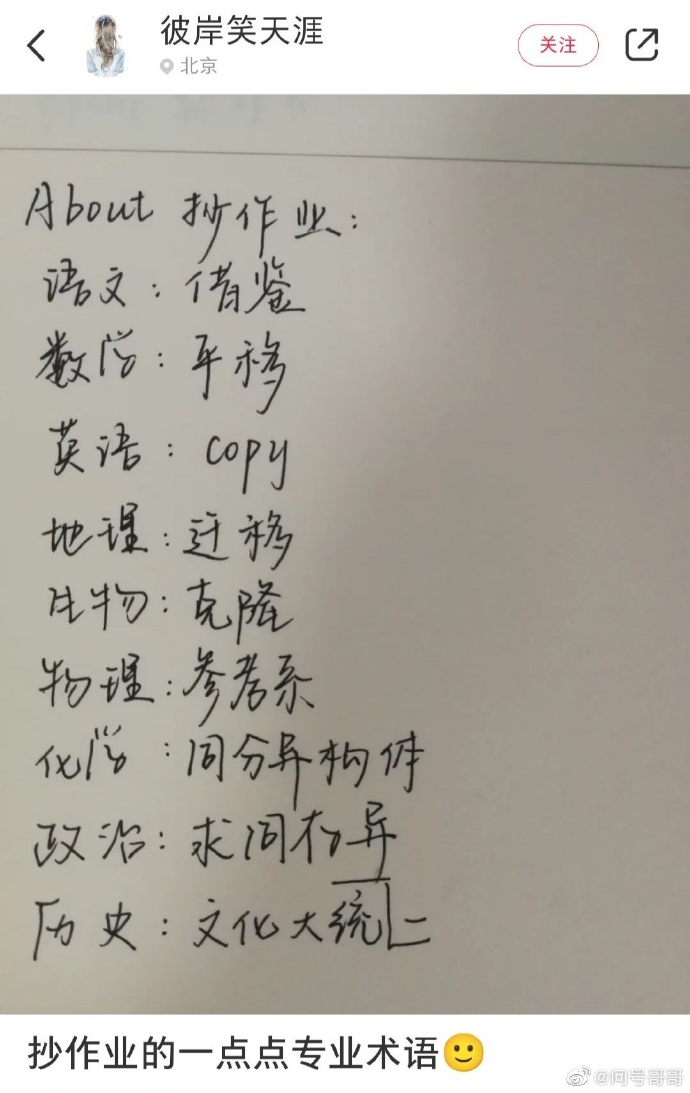 彼岸笑天涯
北京
关注
About 抄作业:
语文:借鉴
数学:平移
英语:copy
地理:迁移
生物:克隆
物理:参考系
化学:同分异构体
政治:求同存异
历史:文化大统一
抄作业的一点点专业术语🙂
@问号哥哥